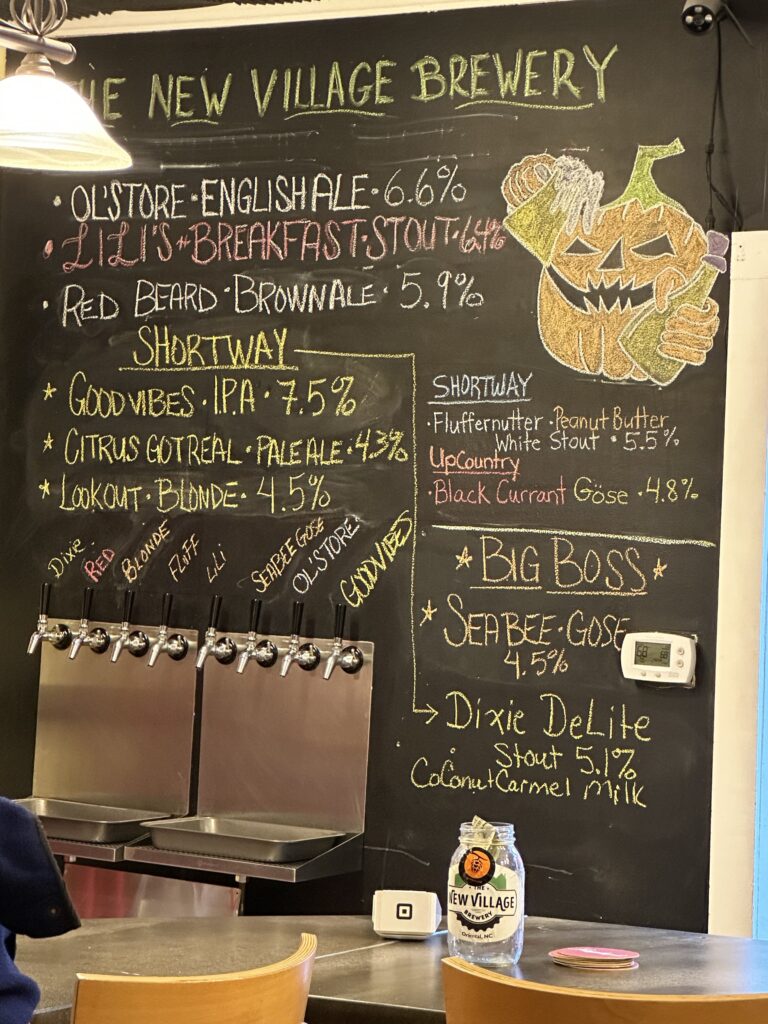 THE NEW VILLAGE BREWERY
• OL'STORE • ENGLISH ALE • 6.6%
• LILI'S • BREAKFAST • STOUT • 6.4%
• RED BEARD • BROWN ALE • 5.9%
SHORTWAY
* GOOD VIBES • I.P.A • 7.5%
* CITRUS GOT REAL • PALE ALE • 4.3%
* LOOKOUT • BLONDE • 4.5%
Dixie
RED
BLONDE
FLUFF
LILI
SEABEE GOSE
OL'STORE
GOODVIBES
SHORTWAY
• Fluffernutter • Peanut Butter
White Stout • 5.5%
UpCountry
• Black Currant Göse • 4.8%
* BIG BOSS *
* SEABEE • GOSE
4.5%
Dixie DeLite
Stout 5.1%
CoConut Carmel Milk
THE
NEW VILLAGE
BREWERY
Oriental, NC